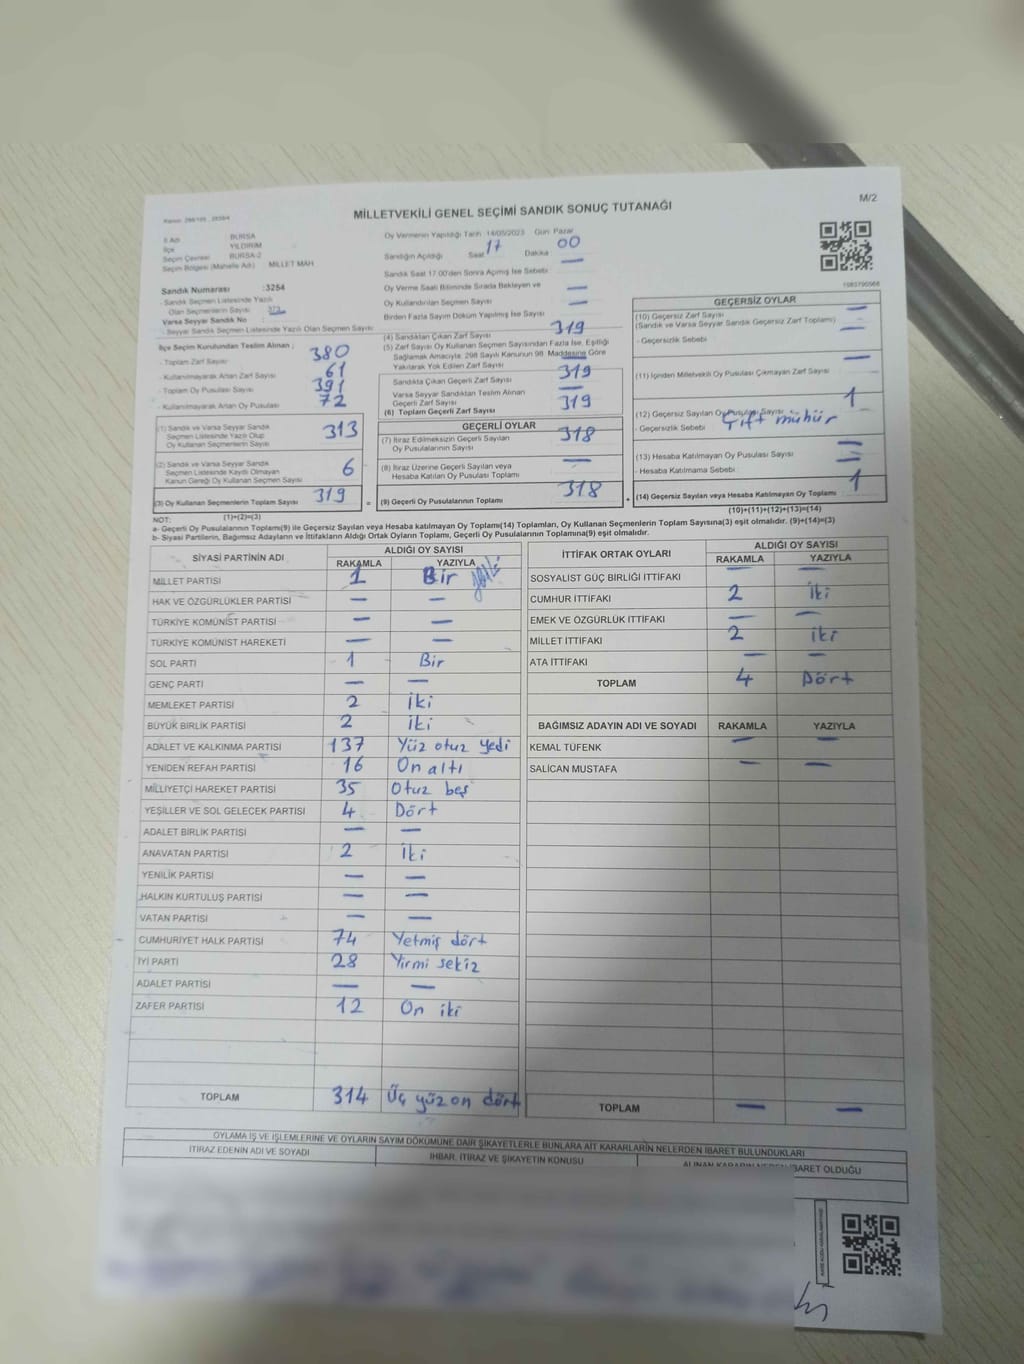 Kanun: 298/105 , 2839/4
M/2
MİLLETVEKİLİ GENEL SEÇİMİ SANDIK SONUÇ TUTANAĞI
İl Adı BURSA
İlçe YILDIRIM
Seçim Çevresi BURSA-2
Seçim Bölgesi (Mahalle Adı) MİLLET MAH
Sandık Numarası :3254
- Sandık Seçmen Listesinde Yazılı
Olan Seçmenlerin Sayısı
Varsa Seyyar Sandık No :
- Seyyar Sandık Seçmen Listesinde Yazılı Olan Seçmen Sayısı
Oy Vermenin Yapıldığı Tarih 14/05/2023 Gün Pazar
Sandığın Açıldığı Saat 17 Dakika 00
Sandık Saat 17.00'den Sonra Açılmış İse Sebebi —
Oy Verme Saati Bitiminde Sırada Bekleyen ve
Oy Kullandırılan Seçmen Sayısı —
Birden Fazla Sayım Döküm Yapılmış İse Sayısı —
İlçe Seçim Kurulundan Teslim Alınan ;
- Toplam Zarf Sayısı 380
- Kullanılmayarak Artan Zarf Sayısı 61
- Toplam Oy Pusulası Sayısı 391
- Kullanılmayarak Artan Oy Pusulası 72
(1) Sandık ve Varsa Seyyar Sandık
Seçmen Listesinde Yazılı Olup
Oy Kullanan Seçmenlerin Sayısı 313
(2) Sandık ve Varsa Seyyar Sandık
Seçmen Listesinde Kaydı Olmayan
Kanun Gereği Oy Kullanan Seçmen Sayısı 6
(3) Oy Kullanan Seçmenlerin Toplam Sayısı 319
(1)+(2)=(3)
(4) Sandıktan Çıkan Zarf Sayısı 319
(5) Zarf Sayısı Oy Kullanan Seçmen Sayısından Fazla İse, Eşitliği
Sağlamak Amacıyla, 298 Sayılı Kanunun 98. Maddesine Göre
Yakılarak Yok Edilen Zarf Sayısı —
Sandıkta Çıkan Geçerli Zarf Sayısı 319
Varsa Seyyar Sandıktan Teslim Alınan
Geçerli Zarf Sayısı —
(6) Toplam Geçerli Zarf Sayısı 319
GEÇERLİ OYLAR
(7) İtiraz Edilmeksizin Geçerli Sayılan
Oy Pusulalarının Sayısı 318
(8) İtiraz Üzerine Geçerli Sayılan veya
Hesaba Katılan Oy Pusulası Toplamı —
= (9) Geçerli Oy Pusulalarının Toplamı 318 +
1083795568
GEÇERSİZ OYLAR
(10) Geçersiz Zarf Sayısı —
(Sandık ve Varsa Seyyar Sandık Geçersiz Zarf Toplamı) —
- Geçersizlik Sebebi
(11) İçinden Milletvekili Oy Pusulası Çıkmayan Zarf Sayısı —
(12) Geçersiz Sayılan Oy Pusulası Sayısı 1
- Geçersizlik Sebebi Çift mühür
(13) Hesaba Katılmayan Oy Pusulası Sayısı —
- Hesaba Katılmama Sebebi —
(14) Geçersiz Sayılan veya Hesaba Katılmayan Oy Toplamı 1
(10)+(11)+(12)+(13)=(14)
NOT:
a- Geçerli Oy Pusulalarının Toplamı(9) ile Geçersiz Sayılan veya Hesaba katılmayan Oy Toplamı(14) Toplamları, Oy Kullanan Seçmenlerin Toplam Sayısına(3) eşit olmalıdır. (9)+(14)=(3)
b- Siyasi Partilerin, Bağımsız Adayların ve İttifakların Aldığı Ortak Oyların Toplamı, Geçerli Oy Pusulalarının Toplamına(9) eşit olmalıdır.
SİYASİ PARTİNİN ADI ALDIĞI OY SAYISI
RAKAMLA YAZIYLA
MİLLET PARTİSİ 1 Bir
HAK VE ÖZGÜRLÜKLER PARTİSİ — —
TÜRKİYE KOMÜNİST PARTİSİ — —
TÜRKİYE KOMÜNİST HAREKETİ — —
SOL PARTİ 1 Bir
GENÇ PARTİ — —
MEMLEKET PARTİSİ 2 İki
BÜYÜK BİRLİK PARTİSİ 2 İki
ADALET VE KALKINMA PARTİSİ 137 Yüz otuz yedi
YENİDEN REFAH PARTİSİ 16 On altı
MİLLİYETÇİ HAREKET PARTİSİ 35 Otuz beş
YEŞİLLER VE SOL GELECEK PARTİSİ 4 Dört
ADALET BİRLİK PARTİSİ — —
ANAVATAN PARTİSİ 2 İki
YENİLİK PARTİSİ — —
HALKIN KURTULUŞ PARTİSİ — —
VATAN PARTİSİ — —
CUMHURİYET HALK PARTİSİ 74 Yetmiş dört
İYİ PARTİ 28 Yirmi sekiz
ADALET PARTİSİ — —
ZAFER PARTİSİ 12 On iki
TOPLAM 314 Üç yüz on dört
İTTİFAK ORTAK OYLARI ALDIĞI OY SAYISI
RAKAMLA YAZIYLA
SOSYALİST GÜÇ BİRLİĞİ İTTİFAKI — —
CUMHUR İTTİFAKI 2 İki
EMEK VE ÖZGÜRLÜK İTTİFAKI — —
MİLLET İTTİFAKI 2 iki
ATA İTTİFAKI — —
TOPLAM 4 Dört
BAĞIMSIZ ADAYIN ADI VE SOYADI RAKAMLA YAZIYLA
KEMAL TÜFENK — —
SALİCAN MUSTAFA — —
TOPLAM — —
OYLAMA İŞ VE İŞLEMLERİNE VE OYLARIN SAYIM DÖKÜMÜNE DAİR ŞİKAYETLERLE BUNLARA AİT KARARLARIN NELERDEN İBARET BULUNDUKLARI
İTİRAZ EDENİN ADI VE SOYADI İHBAR, İTİRAZ VE ŞİKAYETİN KONUSU ALINAN KARARIN NEDEN İBARET OLDUĞU